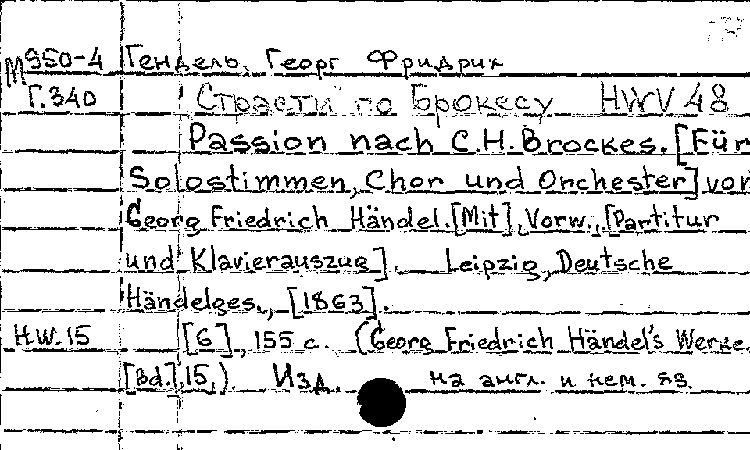 М950-4 Гендель, Георг Фридрих
Г.340 Страсти по Брокесу HWV 48
Passion nach C.H. Brockes. [Für
Solostimmen, Chor und Orchester] von
Georg Friedrich Händel. [Mit] Vorw., [Partitur
und Klavierauszug]. Leipzig, Deutsche
Händelges., [1863].
H.W. 15 [6], 155 с. (Georg Friedrich Händel's Werke.
[Bd.] 15.) Изд. на англ. и нем. яз.